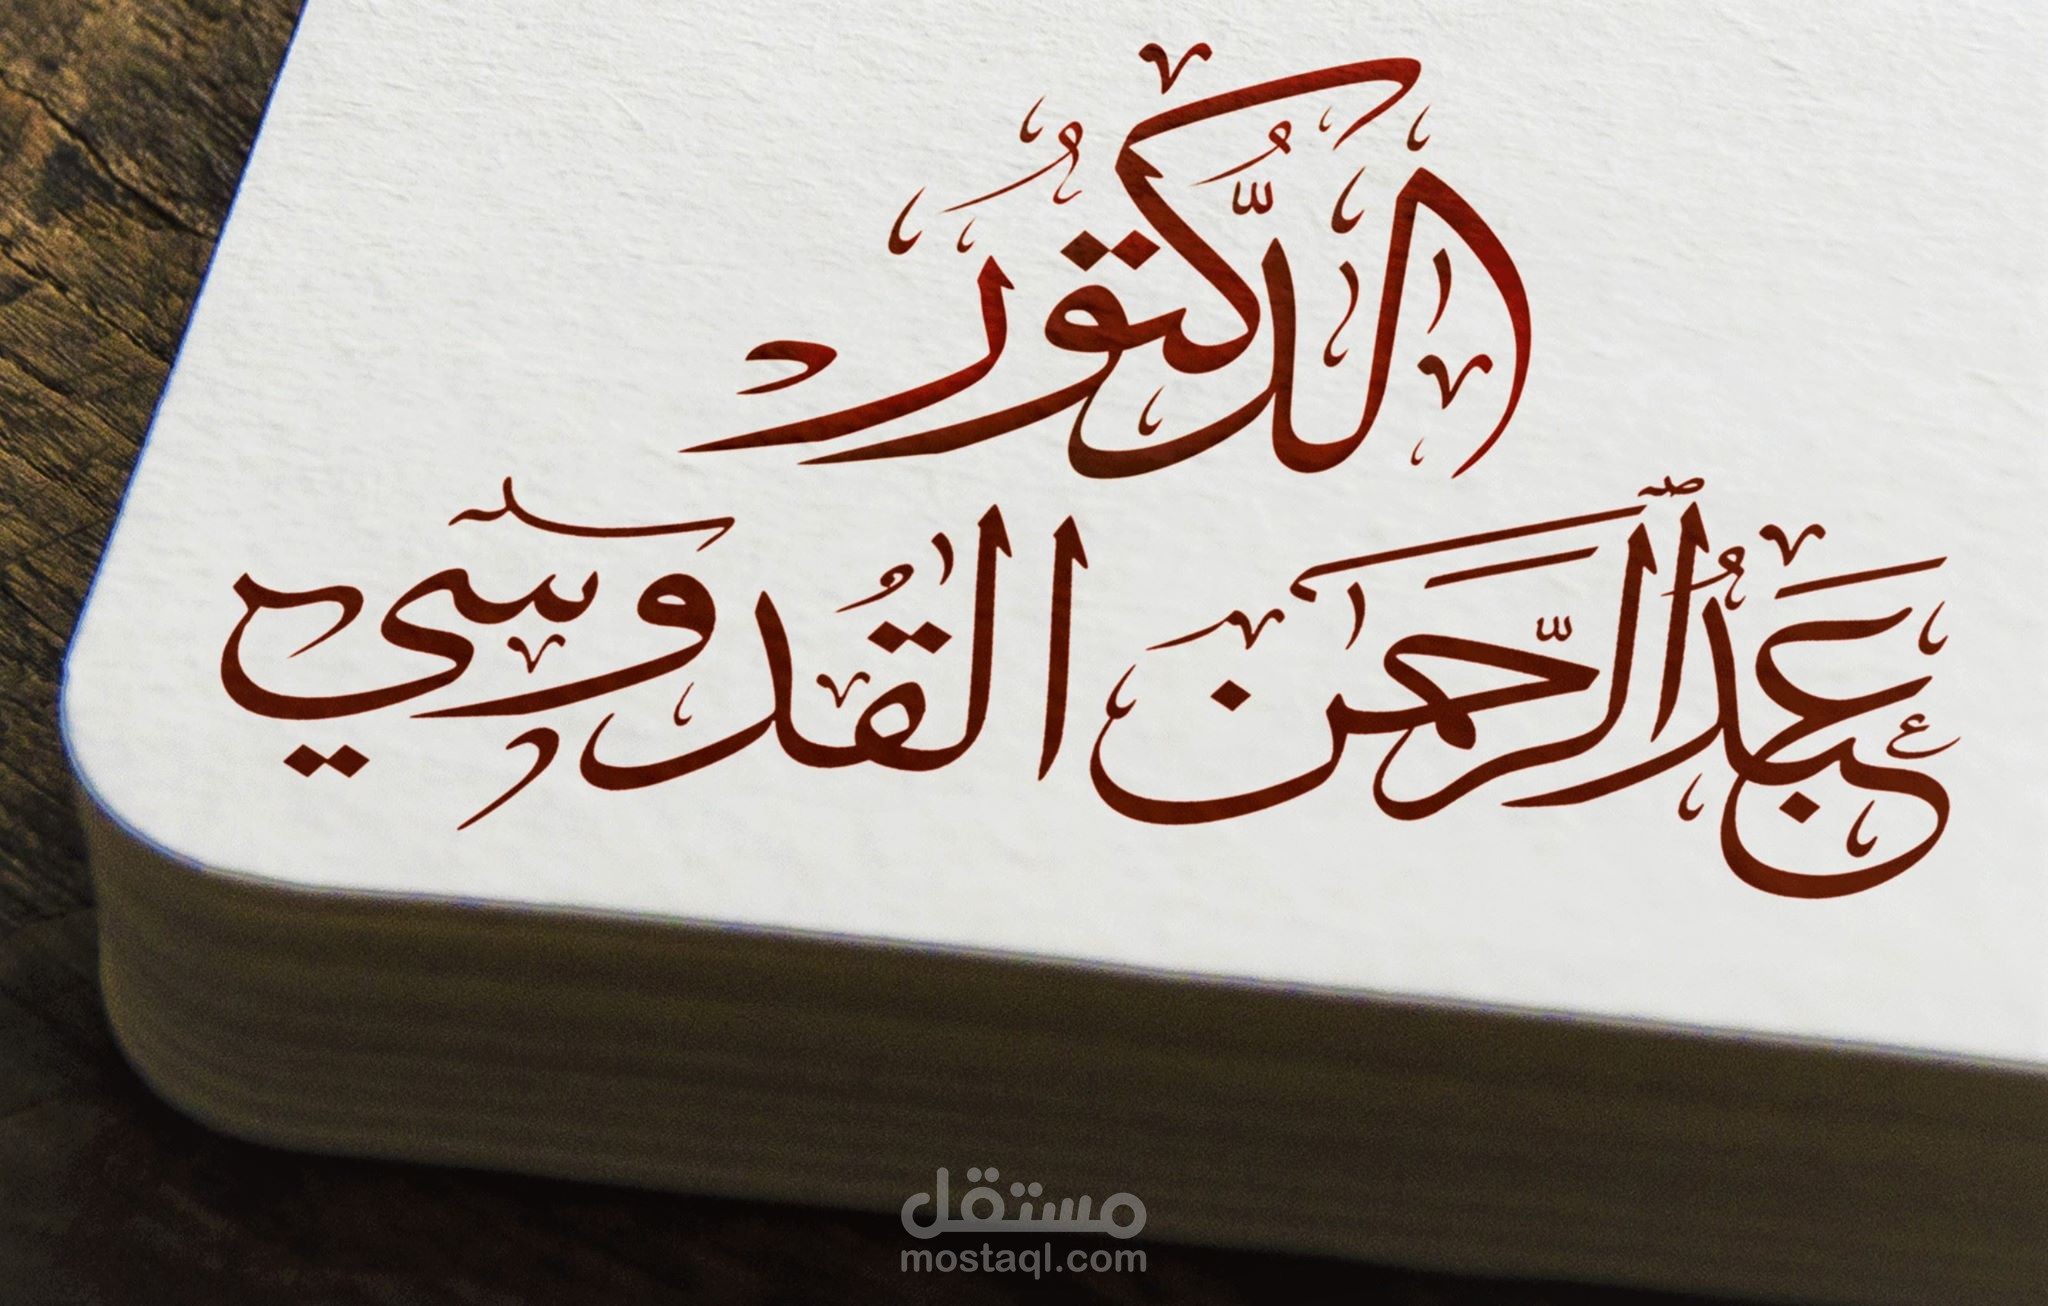 الدُّكتُور
عَبدُ ٱلرَّحمَٰن القُدوسي
مستقل
mostaql.com